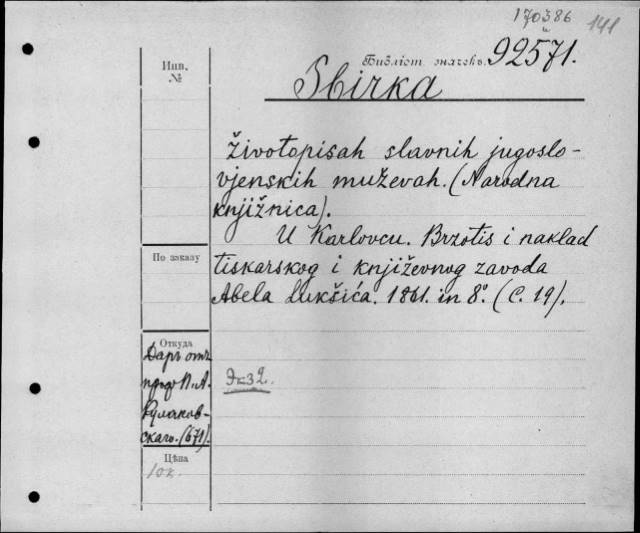 170386
и
141
Инв.
№
Библіот. значекъ. 92571.
Sbirka
životopisah slavnih jugoslo-
vjenskih muževah. (Narodna
knjižnica).
U Karlovcu. Brzotis i naklad
tiskarskog i književnog zavoda
Abela Lukšića. 1861. in 8°. (С. 19).
По заказу
Откуда
Даръ отъ
проф. П. А.
Кулаков-
скаго. (671).
Экз 2.
Цѣна
10к.